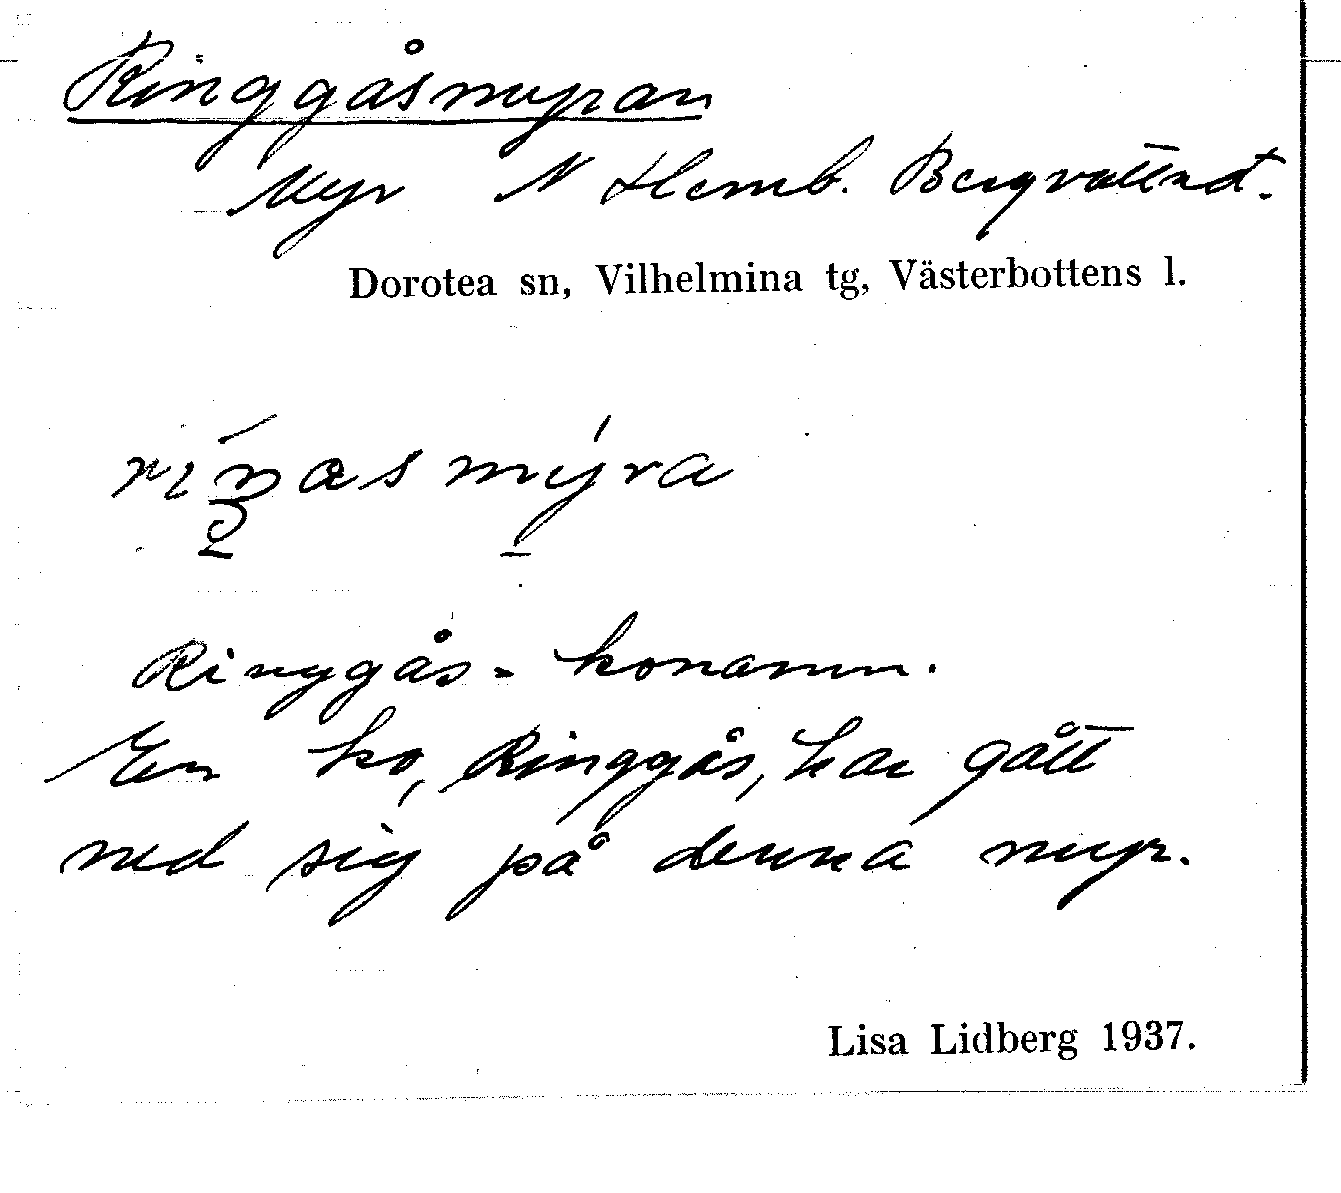 Ringgåsmyran
Myr N Hemb. Bergvattnet.
Dorotea sn, Vilhelmina tg, Västerbottens l.
Ringgås = konamn.
En ko, Ringgås, har gått
ned sig på denna myr.
Lisa Lidberg 1937.